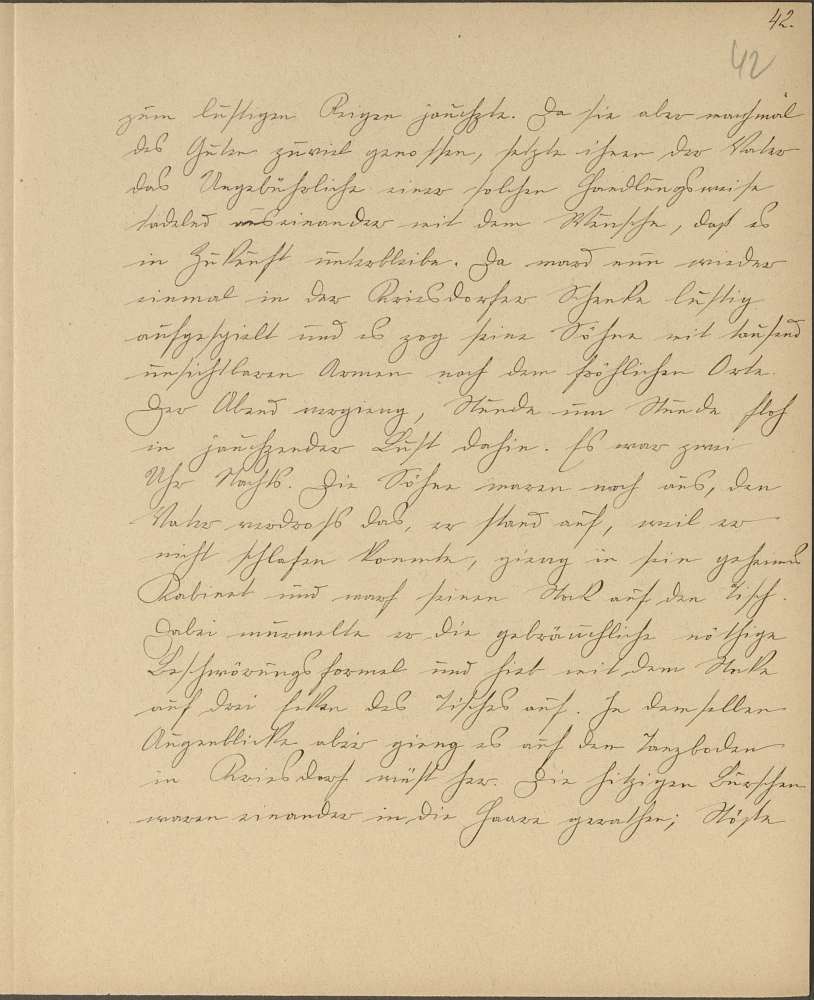 42.
42
zum lustigen Reigen jauchzte. Da sie aber manchmal
des Guten zuviel genossen, setzte ihnen der Vater
das Ungebührliche einer solchen Handlungsweise
tadelnd auseinander mit dem Wunsche, daß es
in Zukunft unterbleibe. Da ward nun wieder
einmal in der Kriesdorfer Schenke lustig
aufgespielt und es zog seine Söhne mit tausend
unsichtbaren Armen nach dem fröhlichen Orte.
Der Abend vergieng, Stunde um Stunde floh
in jauchzender Lust dahin. Es war zwei
Uhr Nachts. Die Söhne waren noch aus, den
Vater verdross das, er stand auf, weil er
nicht schlafen konnte, gieng in sein geheimes
Kabinet und warf seinen Stock auf den Tisch.
Dabei murmelte er die gebräuchliche nöthige
Beschwörungsformel und hieb mit dem Stocke
auf drei Ecken des Tisches auf. In demselben
Augenblicke aber gieng es auf dem Tanzboden
in Kriesdorf wüst her. Die hitzigen Burschen
waren einander in die Haare gerathen; Stöße